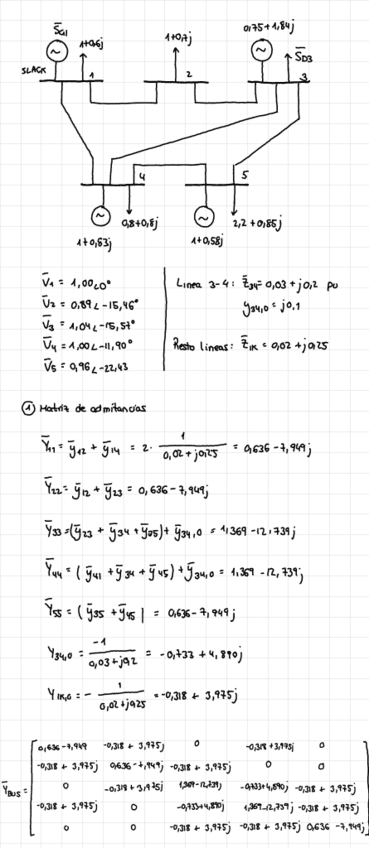 S̄G1
1+0,6j
1+0,7j
0,75+1,84j
S̄D3
SLACK
1
2
3
4
5
1+0,63j
0,8+0,8j
1+0,58j
2,2+0,85j
V̄1 = 1,00∠0°
Ū2 = 0,89∠-15,46°
V̄3 = 1,04∠-15,57°
V̄4 = 1,00∠-11,90°
V̄5 = 0,96∠-22,43
Linea 3-4: z̄34= 0,03 + j0,2 pu
y34,0 = j0,1
Resto lineas: z̄ik = 0,02 + j0,25
① Matriz de admitancias
Ȳ11 = ȳ12 + ȳ14 = 2· 1/(0,02 + j0,25) = 0,636 -7,949j
Ȳ22 = ȳ12 + ȳ23 = 0,636 -7,949j
Ȳ33 = (ȳ23 + ȳ34 + ȳ35) + ȳ34,0 = 1,369 -12,739j
Ȳ44 = (ȳ41 + ȳ34 + ȳ45) + ȳ34,0 = 1,369 -12,739j
Ȳ55 = (ȳ35 + ȳ45) = 0,636 -7,949j
Y34,0 = -1/(0,03 + j0,2) = -0,733 + 4,890j
Yik,0 = - 1/(0,02+j0,25) = -0,318 + 3,975j
ȲBUS =
0,636 -7,949 -0,318 + 3,975j 0 -0,318 + 3,975j 0
-0,318 + 3,975j 0,636 -7,949j -0,318 + 3,975j 0 0
0 -0,318 + 3,975j 1,369 -12,739j -0,733+4,890j -0,318 + 3,975j
-0,318 + 3,975j 0 -0,733+4,890j 1,369 -12,739j -0,318 + 3,975j
0 0 -0,318 + 3,975j -0,318 + 3,975j 0,636 -7,949j